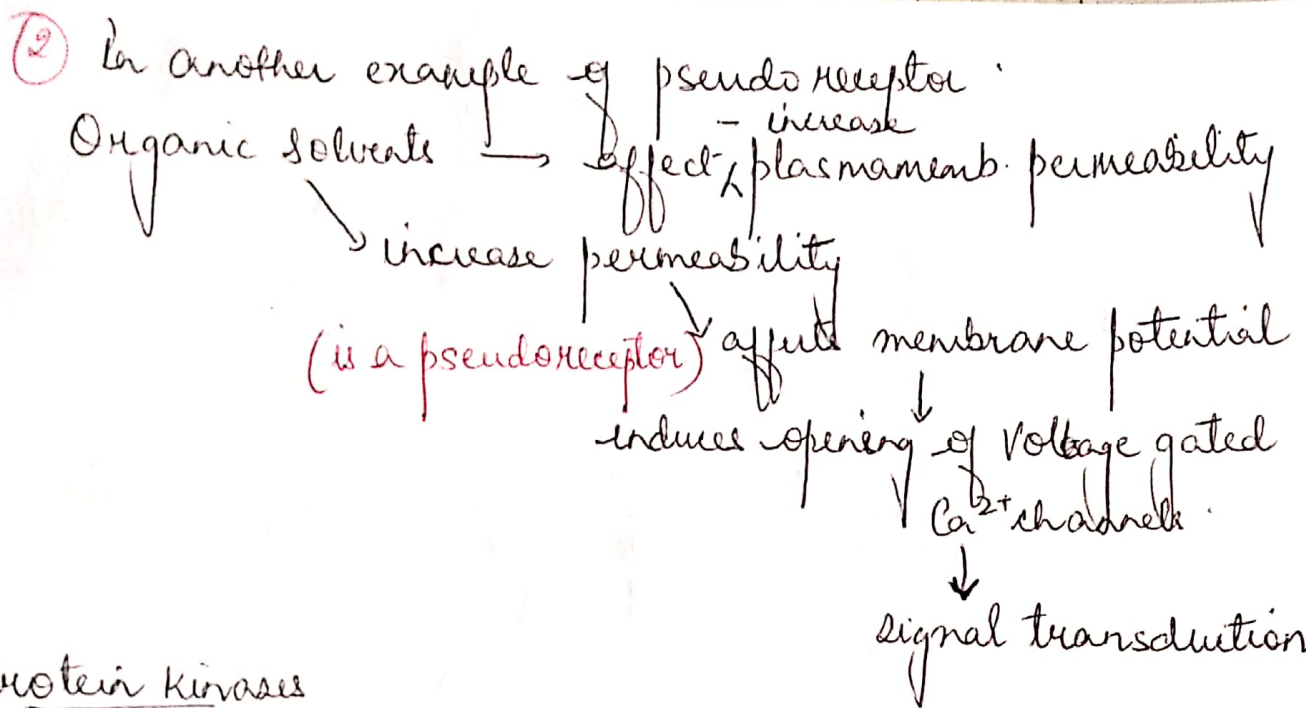 ② In another example of pseudoreceptor.
- increase
Organic solvents → affect plasmamemb. permeability
increase permeability
(is a pseudoreceptor) affects membrane potential
↓
induces opening of voltage gated
Ca²⁺ channels.
↓
signal transduction
rotein kinases